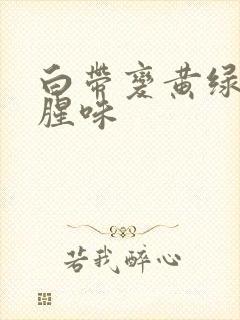 白带变黄绿
腥味
若我醉心